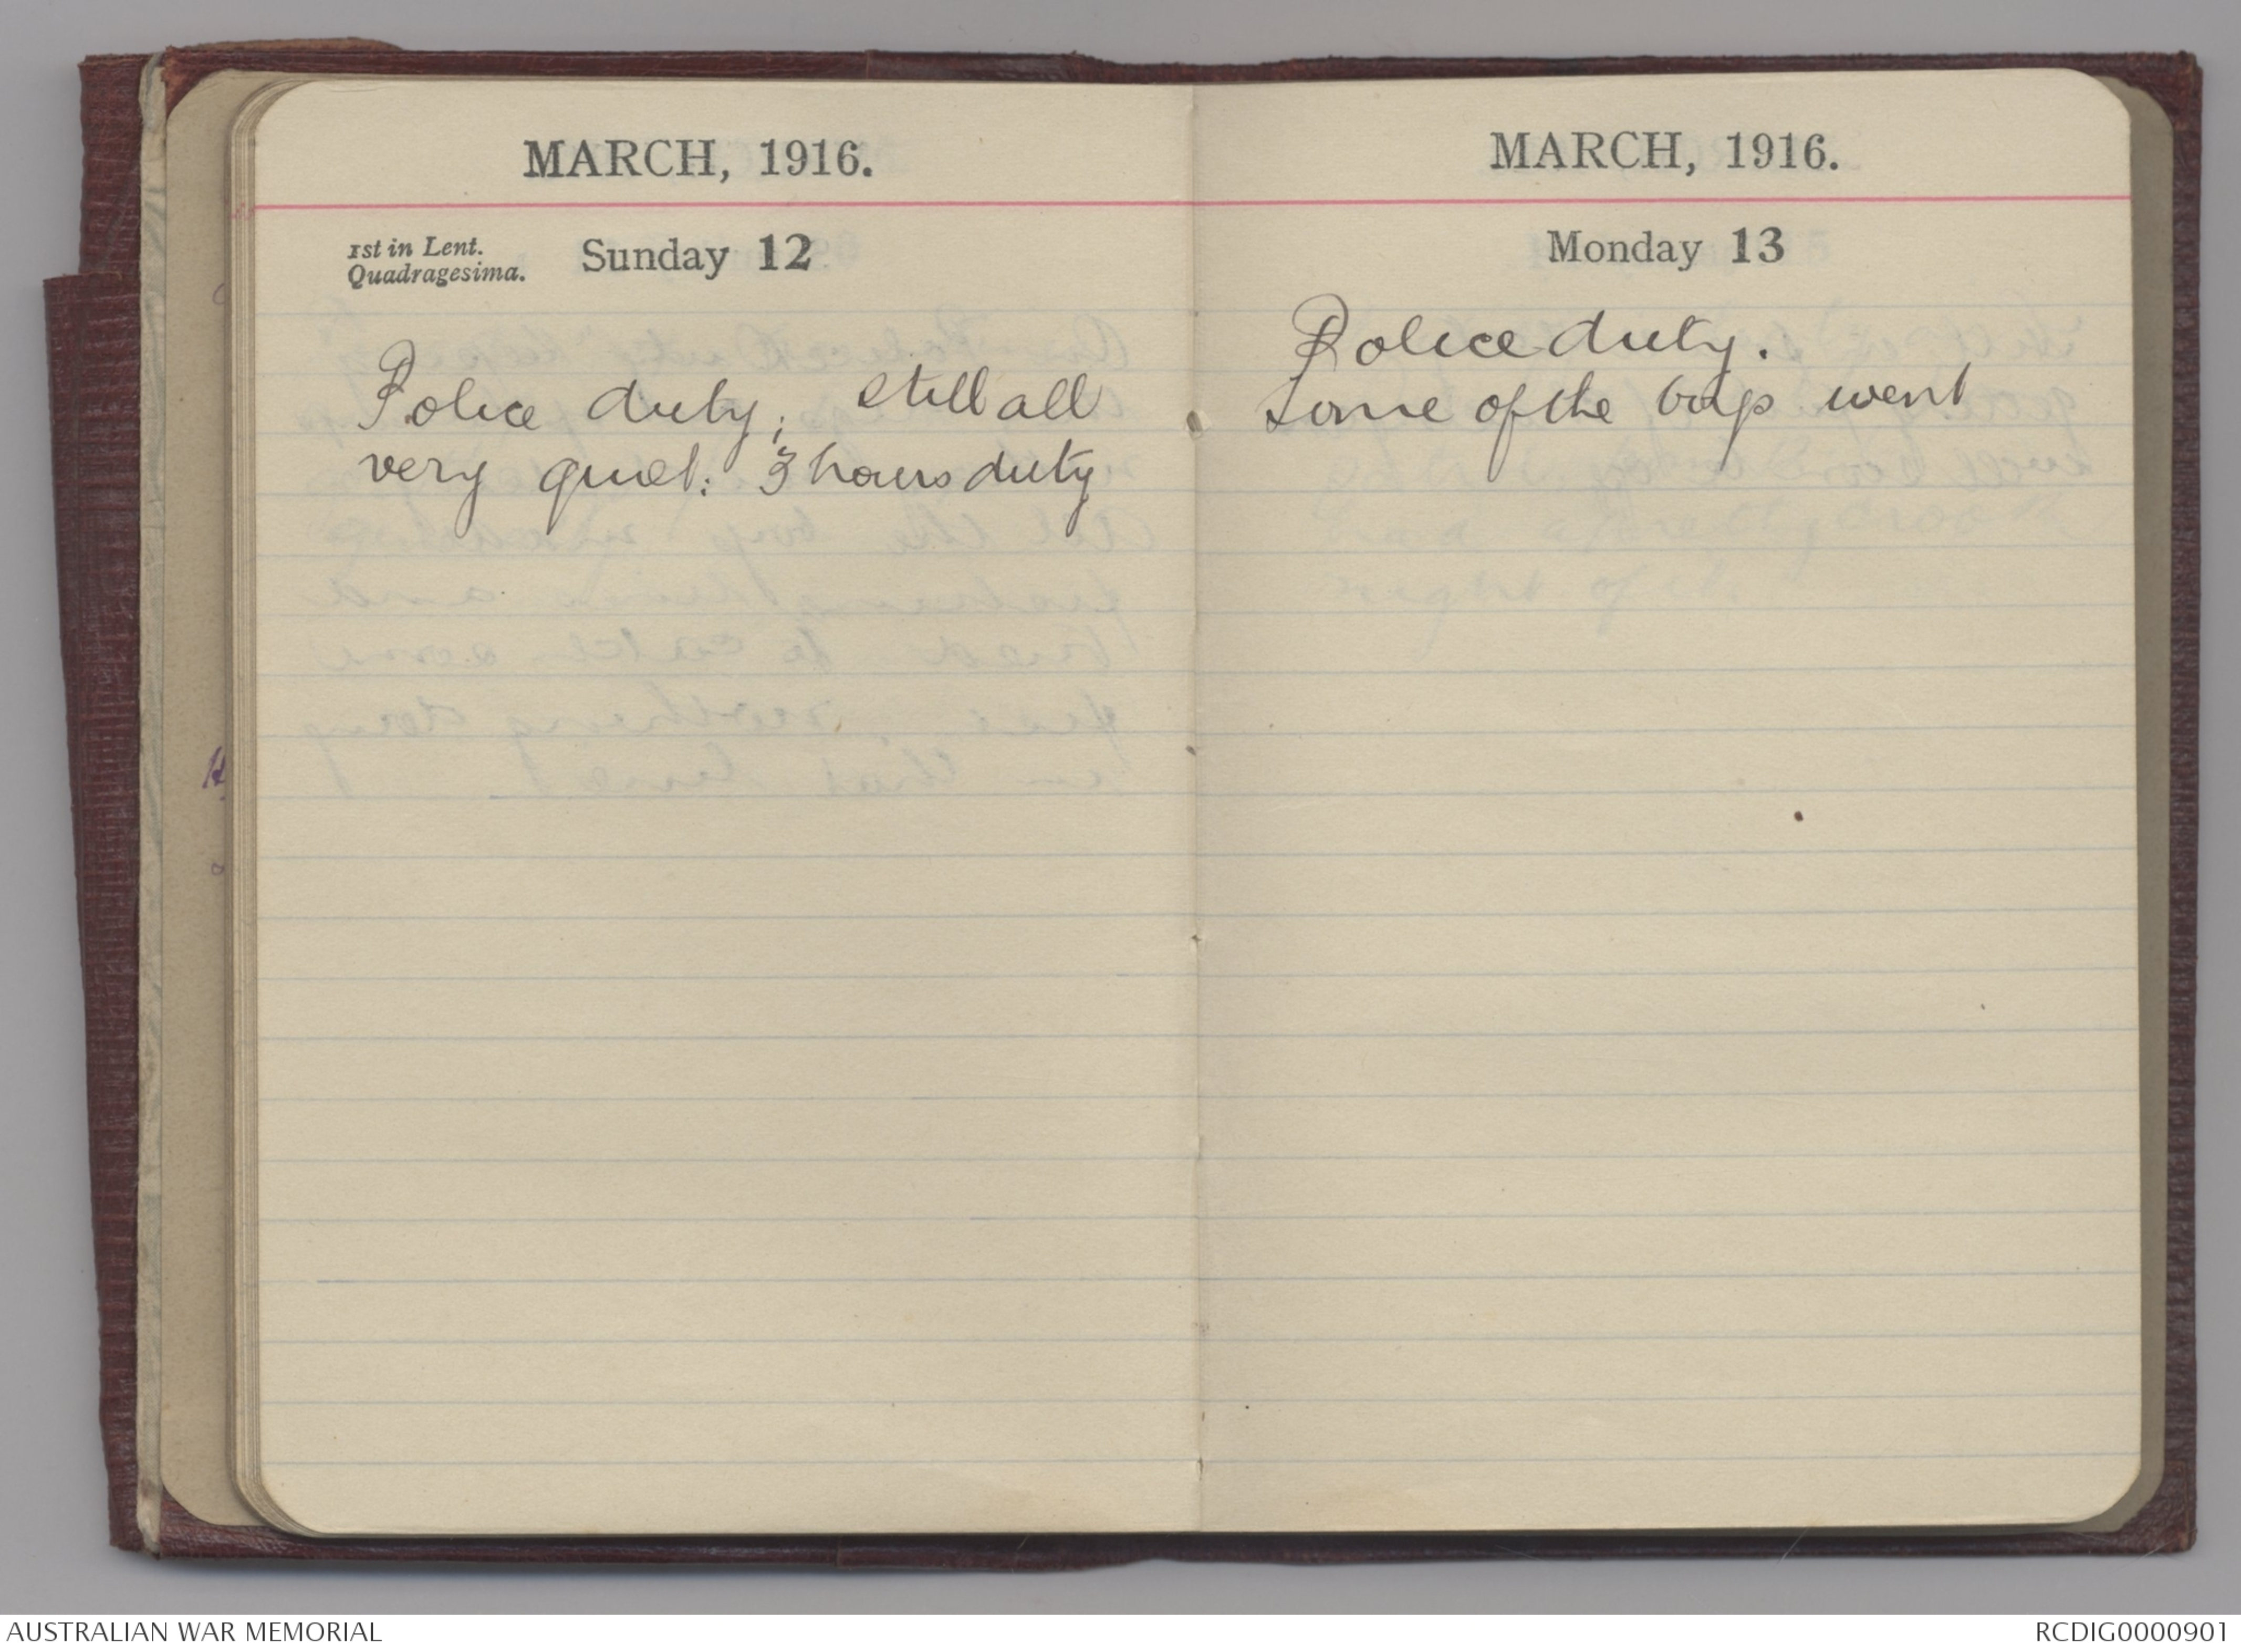 MARCH, 1916.
1st in Lent.
Quadragesima.
Sunday 12
Police duty; still all
very quiet: 3 hours duty
MARCH, 1916.
Monday 13
Police duty.
Some of the boys went
AUSTRALIAN WAR MEMORIAL
RCDIG0000901